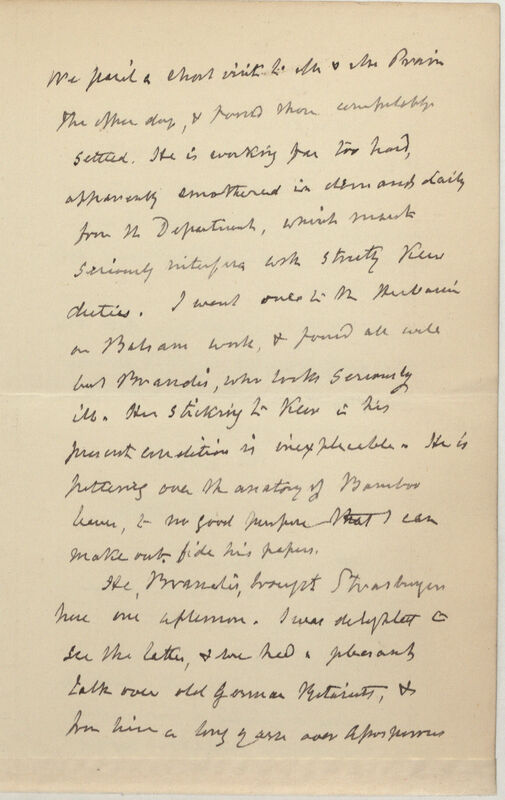 We paid a short visit to Mr & Mrs Prain
the other day, & found them comfortably
settled. He is working far too hard,
apparently smothered in demands daily
from the Department, which must
seriously interfere with strictly Kew
duties. I went over to the Herbarium
on Balsam work, & found all well
but Brandis, who looks seriously
ill. His sticking to Kew in his
present condition is inexplicable. He is
pottering over the anatomy of Bamboo
leaves, to no good purpose that I can
make out, fide his papers.
He, Brandis, brought Strasburger
here one afternoon. I was delighted to
see the latter, & we had a pleasant
talk over old German Botanists, &
from him a long yarn over Aposporous